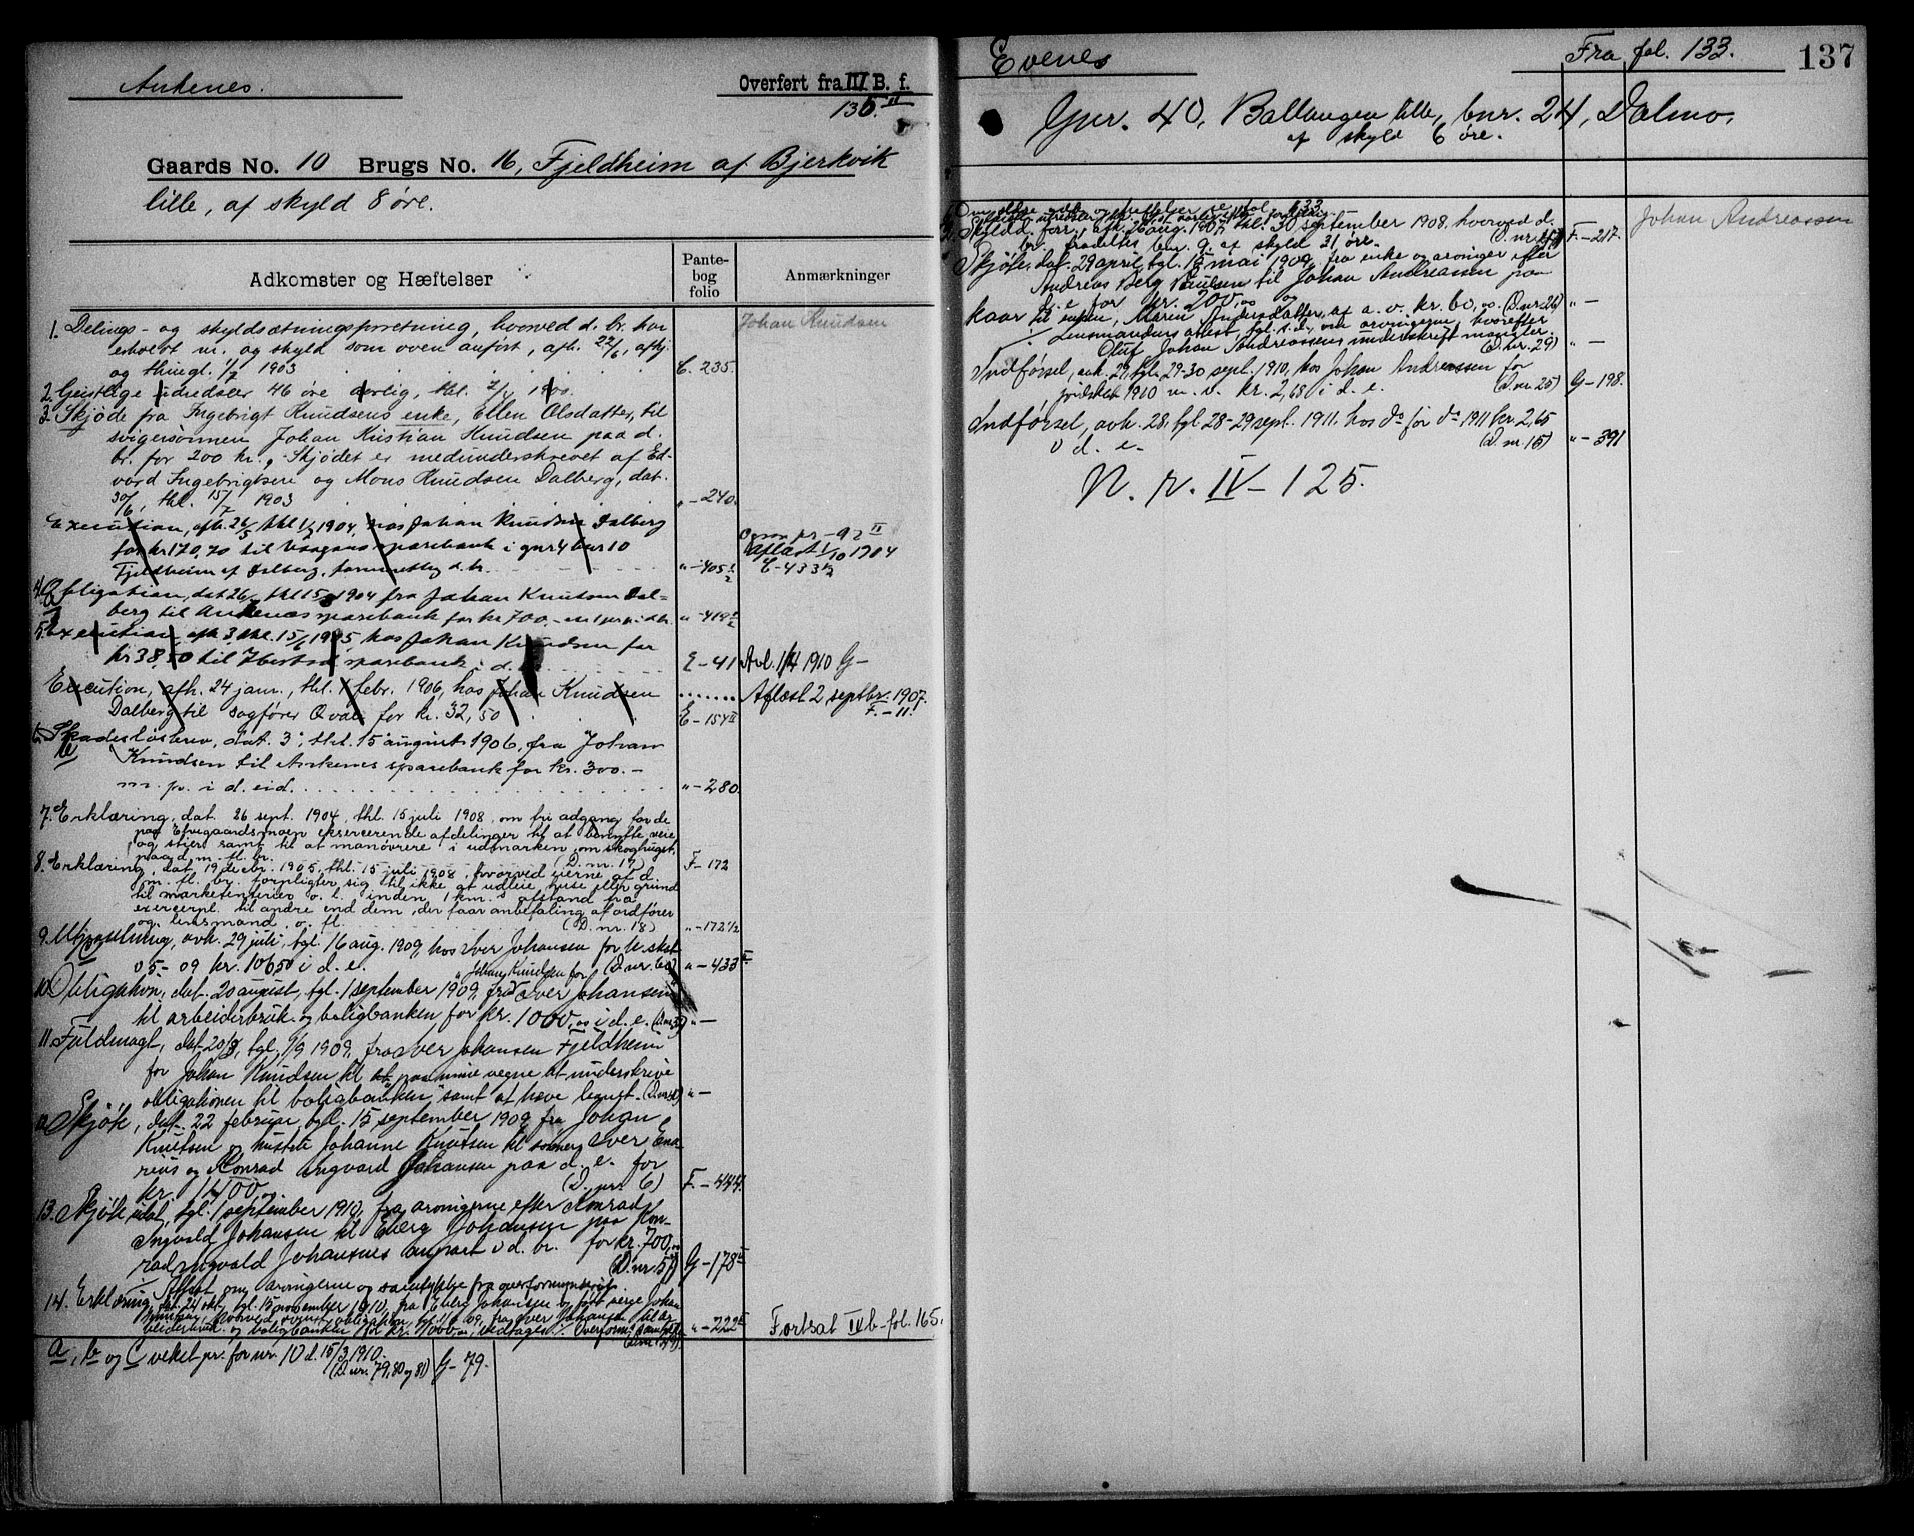 Ankenes.
Overført fra III B. f.
135 II
Gaards No. 10 Brugs No. 16, Fjeldheim af Bjerkvik
lille, af skyld 8 øre.
Adkomster og Hæftelser
Pante-
bog
folio
Anmærkninger
Johan Knudsen
1. Delings- og skyldsætningsforretning, hvorved d. br. har
erholdt nr. og skyld som oven anført, afh. 22/6, afhj.
og thingl. 1/7 1903 E. 235.
2. Geistlige udredsler 46 øre aarlig, thl.
3. Skjøde fra Ingebrigt Knudsens enke, Ellen Olsdatter, til
svigersønnen Johan Kristian Knudsen paa d.
br. for 200 kr., Skjødet er medunderskrevet af Ed-
vard Ingebrigtsen og Mons Knudsen Dalberg, dat.
30/6, thl. 15/7 1903 "-240.
Execution, afh. 26/5 thl 1/7 1904, hos Johan Knudsen Dalberg
for kr 170,70 til Vaagans sparebank i gnr 4 bnr 10
Fjeldheim af Dalberg, "-405 1/2
Aflæst 1/10 1904
E-433 1/2
4. Obligation, dat 26/ thl 15/ 1904 fra Johan Knudsen Dal-
berg til Ankenes sparebank for kr 700.- m 1 pr i d br. "-419 1/2
5. Execution afh. 3. thl. 15/6 1905, hos Johan Knudsen for
kr 38,50 til Ibestad sparebank i d. E-41 Avl. 1/4 1910 G-
Execution, afh. 24 janr., thl. 1 febr. 1906, hos Johan Knudsen Aflæst 2 septbr. 1907.
Dalberg til sagfører Qvale for kr. 32,50 E-154 II F.-11.
6. Skadesløsbrev, dat. 3, thl. 15 august 1906, fra Johan
Knudsen til Ankenes sparebank for kr. 300.-
m. pr. i d. eid. "-280.
7. Erklæring, dat. 26 sept. 1904, thl. 15 juli 1908, om fri adgang for de
paa Elvegaardsmoen exercerende afdelinger til at benytte veie
og stier samt til at manøvrere i udmarken, om skoghugst,
paa d. m. fl. br. (D. nr. 17) F-172
8. Erklæring, dat. 19 decbr. 1905, thl. 15 juli 1908, hvorved eierne af d.
m. fl. br. forpligter sig til ikke at udleie huse eller grund
til marketenteries o. l. inden 1 km.s afstand fra
exercerpl. til andre end dem, der faar anbefaling af ordfører
og lensmand, o. fl. (D. nr. 18) "-172 1/2
9. Utpantning, avh. 29 juli, tgl. 16 aug. 1909 hos Iver Johansen for h. skat
05-09 kr. 10650 i d. e. (D nr. 60) "-433 II
" Johan Knudsen for
10. Obligation, dat. 20 august, tgl. 1 september 1909, fra Iver Johansen
til arbeiderbruk- og boligbanken for kr. 1000,00 i d. e. "-
11. Fuldmagt, dat. 20/8, tgl. 1/9 1909, fra Iver Johansen Fjeldheim
for Johan Knudsen til at paa mine vegne at underskrive
obligationen til boligbanken, samt at hæve beløpet. "-
12. Skjøte, dat. 22 februar, tgl. 15 september 1909 fra Johan
Knutsen og hustru Johanne Knutsen til sønner Iver
og Konrad Ingvard Johansen paa d. e. for
kr. 1400,00 (D. nr. 6) F.-444.
13. Skjøte, udat., tgl. 1 september 1910, fra arvingerne efter Konrad
Ingvald Johansen til Eberg Johansen paa Kon-
rad Ingvald Johansens anpart i d. br. for kr. 700,00
(D. nr. 57) G-178 II
Attest om arvingerne og samtykke fra overformynderiet
14. Erklæring, dat. 24 okt., tgl. 15 november 1910, fra Eberg Johansen og født verge Johan
Knudsen, hvorved ovenst. obligation, tgl. 1/9 09, fra Iver Johansen til ar-
beiderbruk- og boligbanken for kr. 1000,00, vedtages. Overform. samtykke "-222 II Fortsat IV b-fol. 165.
a, b og c veket pr. for nr. 10 d. 15/3 1910.
(D nr. 79, 80 og 81) G-79.
Evenes
Fra fol. 133.
137
Gnr. 40, Ballangen lille, bnr. 24, Dalmo,
af skyld 6 øre.
Johan Andreassen
hæftelser se fol. 133
Skyldd. forr., afh. 26 aug. 1907, thl. 30 september 1908, hvorved d.
br. fradeltes bnr. 9. af skyld 21 øre. F.-217.
Skjøte, dat. 29 april, tgl. 15 mai 1909, fra enke og arvinger efter
Andreas Berg Paulsen til Johan Andreassen paa
d. e. for kr. 200,00 og
kaar til enken, Maren Andersdatter, af a. v. kr. 60,00. (D nr. 26) "-
Lensmandens attest, tgl. s. d., om arvingerne, hvorefter
Oluf Johan Andreassens underskrift mangler.
(D. nr. 29) "-
Indførsel, avh. 29, tgl. 29-30 sept. 1910, hos Johan Andreassen for
jordskat 1910 m. v. kr. 2,68 i d. e. (D. nr. 25) G-198.
Indførsel, avh. 28, tgl 28-29 sept. 1911, hos do for do 1911 kr. 2,65
i d. e. (D nr. 15) "-391
N. r. IV-125.